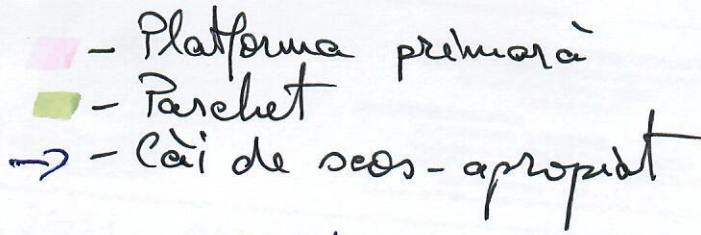 - Platforma primară
- Parchet
- Căi de scos-apropiat